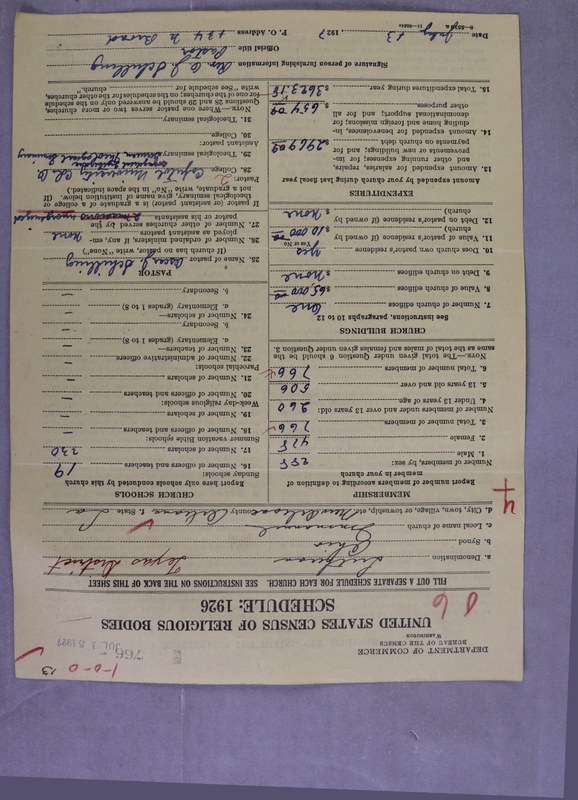 1-0-0 13
766
JUL 15 1927
DEPARTMENT OF COMMERCE
BUREAU OF THE CENSUS
WASHINGTON
UNITED STATES CENSUS OF RELIGIOUS BODIES
SCHEDULE: 1926
FILL OUT A SEPARATE SCHEDULE FOR EACH CHURCH. SEE INSTRUCTIONS ON THE BACK OF THIS SHEET
a. Denomination Lutheran Texas District
b. Synod Ohio
c. Local name of church Immanuel
d. City, town, village, or township, etc. County Orleans, State La
MEMBERSHIP
Report number of members according to definition of
member in your church
Number of members, by sex:
1. Male
2. Female
3. Total number of members. 766
Number of members under and over 13 years old:
4. Under 13 years of age. 260
5. 13 years old and over 506
6. Total number of members 766
NOTE—The total given under Question 6 should be the
same as the total of males and females given under Question 3.
CHURCH BUILDINGS
See instructions, paragraphs 10 to 12
7. Number of church edifices one
8. Value of church edifices $65,000
9. Debt on church edifices $ none
10. Does church own pastor's residence yes
Yes or No
11. Value of pastor's residence (if owned by
church) $10,000
12. Debt on pastor's residence (if owned by
church) $ none
EXPENDITURES
Amount expended by your church during last fiscal year
13. Amount expended for salaries, repairs,
and other running expenses; for im-
provements or new building; and for
payments on church debt $2969.09
14. Amount expended for benevolences, in-
cluding home and foreign missions; for
denominational support; and for all
other purposes. $654.09
15. Total expenditures during year. $3623.18
CHURCH SCHOOLS
Report here only schools conducted by this church
Sunday schools:
16. Number of officers and teachers 19
17. Number of scholars 230
Summer vacation Bible schools:
18. Number of officers and teachers —
19. Number of scholars —
Week-day religious schools:
20. Number of officers and teachers —
21. Number of scholars —
Parochial schools:
22. Number of administrative officers.
23. Number of teachers—
a. Elementary (grades 1 to 8) —
b. Secondary —
24. Number of scholars—
a. Elementary (grades 1 to 8) —
b. Secondary —
PASTOR
25. Name of pastor Oscar J. Schilling
(If church has no pastor, write "None")
26. Number of ordained ministers, if any, em-
ployed as assistant pastors none
27. Number of other churches served by the
pastor or his assistants
If pastor or assistant pastor is a graduate of a college or
theological seminary, give name of institution below. (If
not a graduate, write "No" in the space indicated.)
Pastor:
28. College. Capital University Col. O.
29. Theological seminary.
Assistant pastor:
30. College.
31. Theological seminary
NOTE.—Where one pastor serves two or more churches,
Questions 25 and 29 should be answered only on the schedule
for one of the churches; on the schedules for the other churches,
write "See schedule for church."
Signature of person furnishing information Rev. O. J. Schilling
Official title Pastor
P. O. Address
Date July 13, 1927